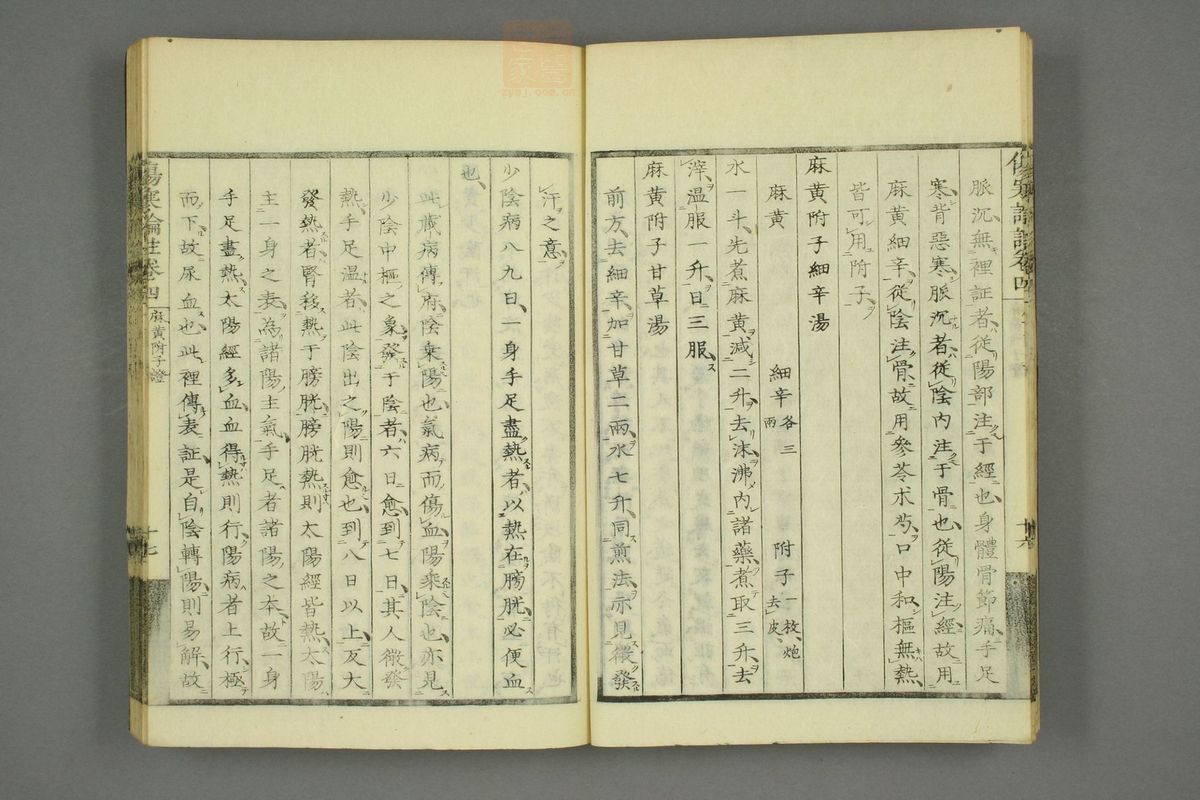 脈沉無裡証者從陽部注于經也身體骨節痛手足
寒背惡寒脈沉者從陰內注于骨也從陽注經故用
麻黄細辛從陰注骨故用參苓朮芍口中和樞無熱
皆可用附子
麻黄附子細辛湯
麻黄 細辛各三兩 附子一枚炮去皮
水一斗先煮麻黄減二升去沫沸內諸藥煮取三升去
滓温服一升日三服
麻黄附子甘草湯
前方去細辛加甘草二兩水七升同煎法亦見微發
十六
汗之意
少陰病八九日一身手足盡熱者以熱在膀胱必便血
也
此藏病傳府陰乘陽也氣病而傷血陽乘陰也亦見
少陰中樞之象發于陰者六日愈到七日其人微發
熱手足温者此陰出之陽則愈也到八日以上反大
發熱者腎移熱于膀胱膀胱熱則太陽經皆熱太陽
主一身之表為諸陽主氣手足者諸陽之本故一身
手足盡熱太陽經多血血得熱則行陽病者上行極
而下故尿血也此裡傳表証是自陰轉陽則易解故
傷寒論註卷四
麻黄附子證
十七